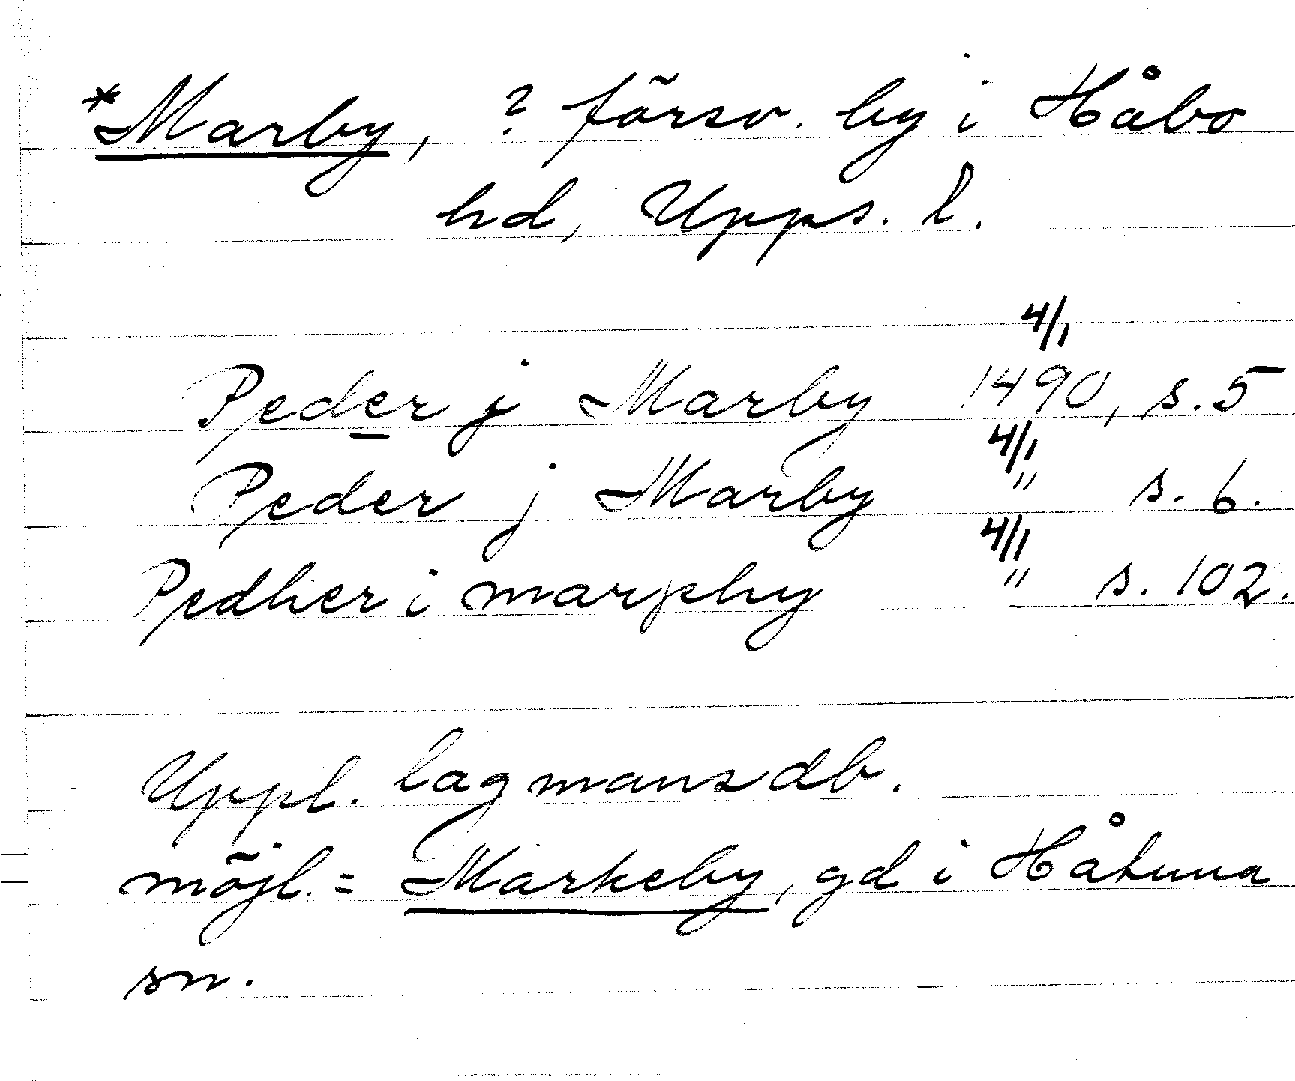 *Marby, ? försv. by i Håbo
hd, Upps. l.
Peder j Marby 4/1 1490, s. 5
Peder j Marby 4/1 " s. 6.
Pedher i marphy 4/1 " s. 102.
Uppl. lagmansdb.
möjl. = Markeby, gd i Håtuna
sn.